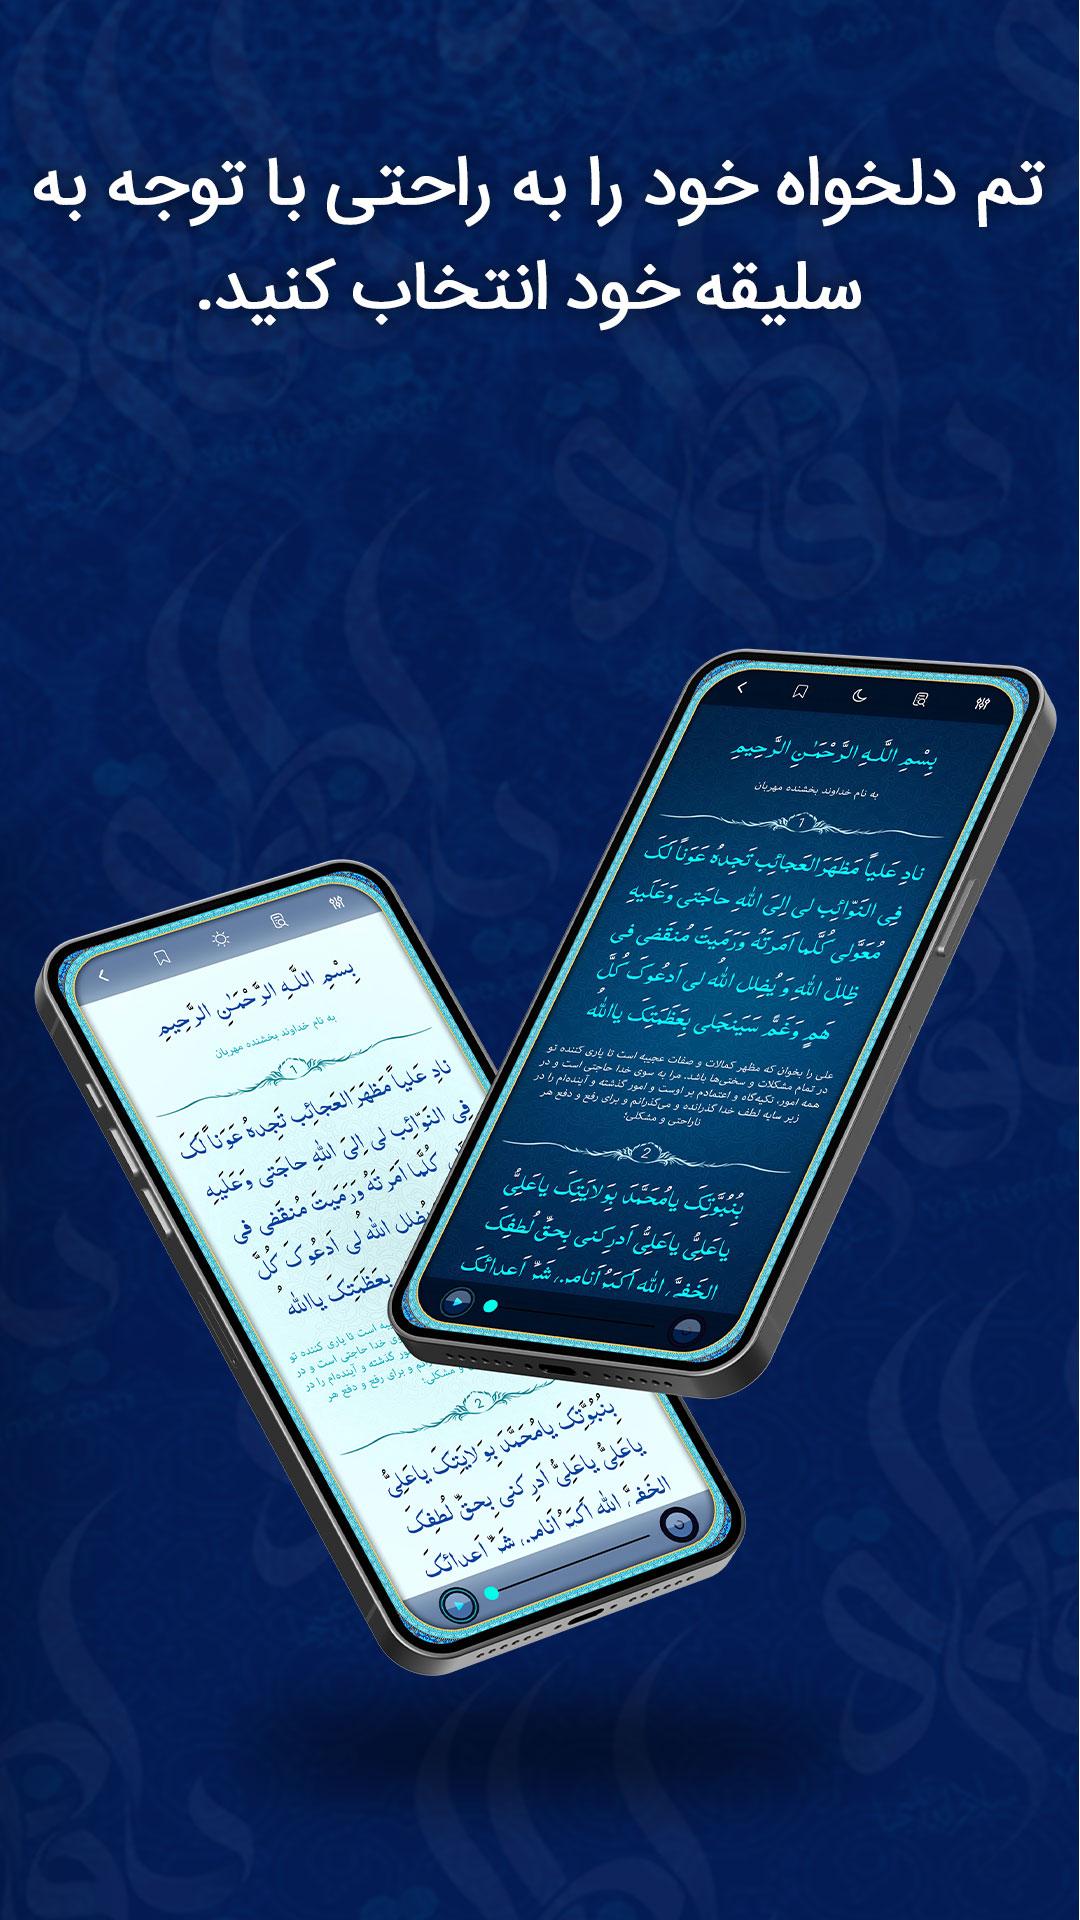 تم دلخواه خود را به راحتی با توجه به
سلیقه خود انتخاب کنید.
بِسْمِ اللَّهِ الرَّحْمَٰنِ الرَّحِيمِ
به نام خداوند بخشنده مهربان
1
نادِ عَلیاً مَظهَرَ العَجائِب تَجِدهُ عَوناً لَکَ
فِی النَوّائِب لی اِلیَ اللهِ حاجَتی وَعَلَیهِ
مُعَوَّلی کُلَّما اَمَرتَهُ وَرَمیتَ مُنقَضی فی
ظِللّ اللهِ وَ یُضِلل اللُه لی اَدعُوکَ کُلَّ
هَمٍ وَغَمًّ سَیَنجَلی بِعَظَمَتِکَ یااللهُ
علی را بخوان که مظهر کمالات و صفات عجیبه است تا یاری کننده تو
در تمام مشکلات و سختی‌ها باشد. مرا به سوی خدا حاجتی است و در
همه امور، تکیه‌گاه و اعتمادم بر اوست و امور گذشته و آینده‌ام را در
زیر سایه لطف خدا گذرانده و می‌گذرانم و برای رفع و دفع هر
ناراحتی و مشکلی؛
2
بِنُبُوَّتِکَ یامُحَمَّدَ بِوَلایَتِکَ یاعَلِیُّ
یاعَلِیُّ یاعَلیُّ اَدرِکنی بِحقِّ لُطفِکَ
الخَفیَّ، الله اَکبَرُ اَنامِن شَرِّ اَعدائکَ
بِسْمِ اللَّهِ الرَّحْمَٰنِ الرَّحِيمِ
به نام خداوند بخشنده مهربان
1
نادِ عَلیاً مَظهَرَ العَجائِب تَجِدهُ عَوناً لَکَ
فِی النَوّائِب لی اِلیَ اللهِ حاجَتی وَعَلَیهِ
کُلَّما اَمَرتَهُ وَرَمیتَ مُنقَضی فی
یُضِلل اللُه لی اَدعُوکَ کُلَّ
بِعَظَمَتِکَ یااللهُ
است تا یاری کننده تو
خدا حاجتی است و در
گذشته و آینده‌ام را در
و برای رفع و دفع هر
مشکلی؛
2
بِنُبُوَّتِکَ یامُحَمَّدَ بِوَلایَتِکَ یاعَلِیُّ
یاعَلِیُّ یاعَلیُّ اَدرِکنی بِحقِّ لُطفِکَ
الخَفیَّ، الله اَکبَرُ اَنامِن شَرِّ اَعدائکَ